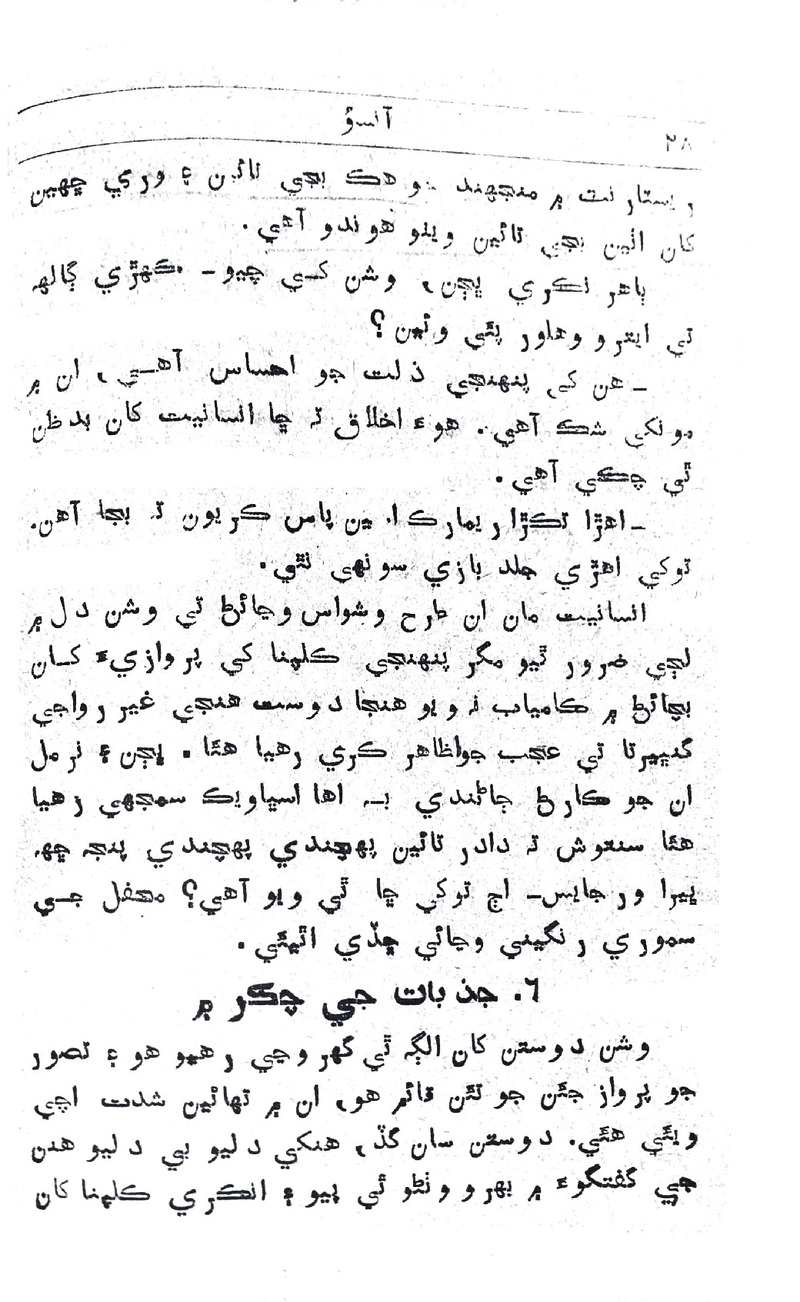 آنسؤ
٢٨
ريسٽارنٽ ۾ منجهند جو هڪ بجي تائين ۽ وري ڇهين
کان اٺين بجي تائين ويٺو هوندو آهي.
ٻاهر نڪري ڀڃن، وشن کي چيو- ڪهڙي ڳالهہ
تي ايترو وهلور پئي وئين؟
- هن کي پنهنجي ذلت جو احساس آهي، ان ۾
مونکي شڪ آهي. هوءَ اخلاق تہ ڇا انسانيت کان بدظن
ٿي چڪي آهي.
-اهڙا تڪڙا ريمارڪ اسين پاس ڪريون تہ بجا آهن.
توکي اهڙي جلد بازي سونهي نٿي.
انسانيت مان ان طرح وشواس وڃائڻ تي وشن دل ۾
لڄي ضرور ٿيو مگر پنهنجي ڪلپنا کي پروازيءَ کان
بچائڻ ۾ ڪامياب نہ ويو هنجا دوست هنجي غير رواجي
گنڀيرتا تي عجب جو اظاهر ڪري رهيا هئا. ڀڃن ۽ نرمل
ان جو ڪارڻ ڄاڻندي بہ اها اسڀاويڪ سمجهي رهيا
هئا سنتوش تہ دادر تائين پهچندي پهچندي پنجہ ڇهہ
ڀيرا ورجايس- اڄ توکي ڇا ٿي ويو آهي؟ محفل جي
سموري رنگيني وڃائي ڇڏي اٿيئي.
٦. جذبات جي چڪر ۾
وشن دوستن کان الڳ ٿي گهر وڃي رهيو هو ۽ تصور
جو پرواز جئن جو تئن قائم هو، ان ۾ تهائين شدت اچي
ويئي هئي. دوستن سان گڏ، هنکي دليو بي دليو هنن
جي گفتگوءَ ۾ بهرو وٺڻو ئي پيو ۽ انڪري ڪلپنا کان